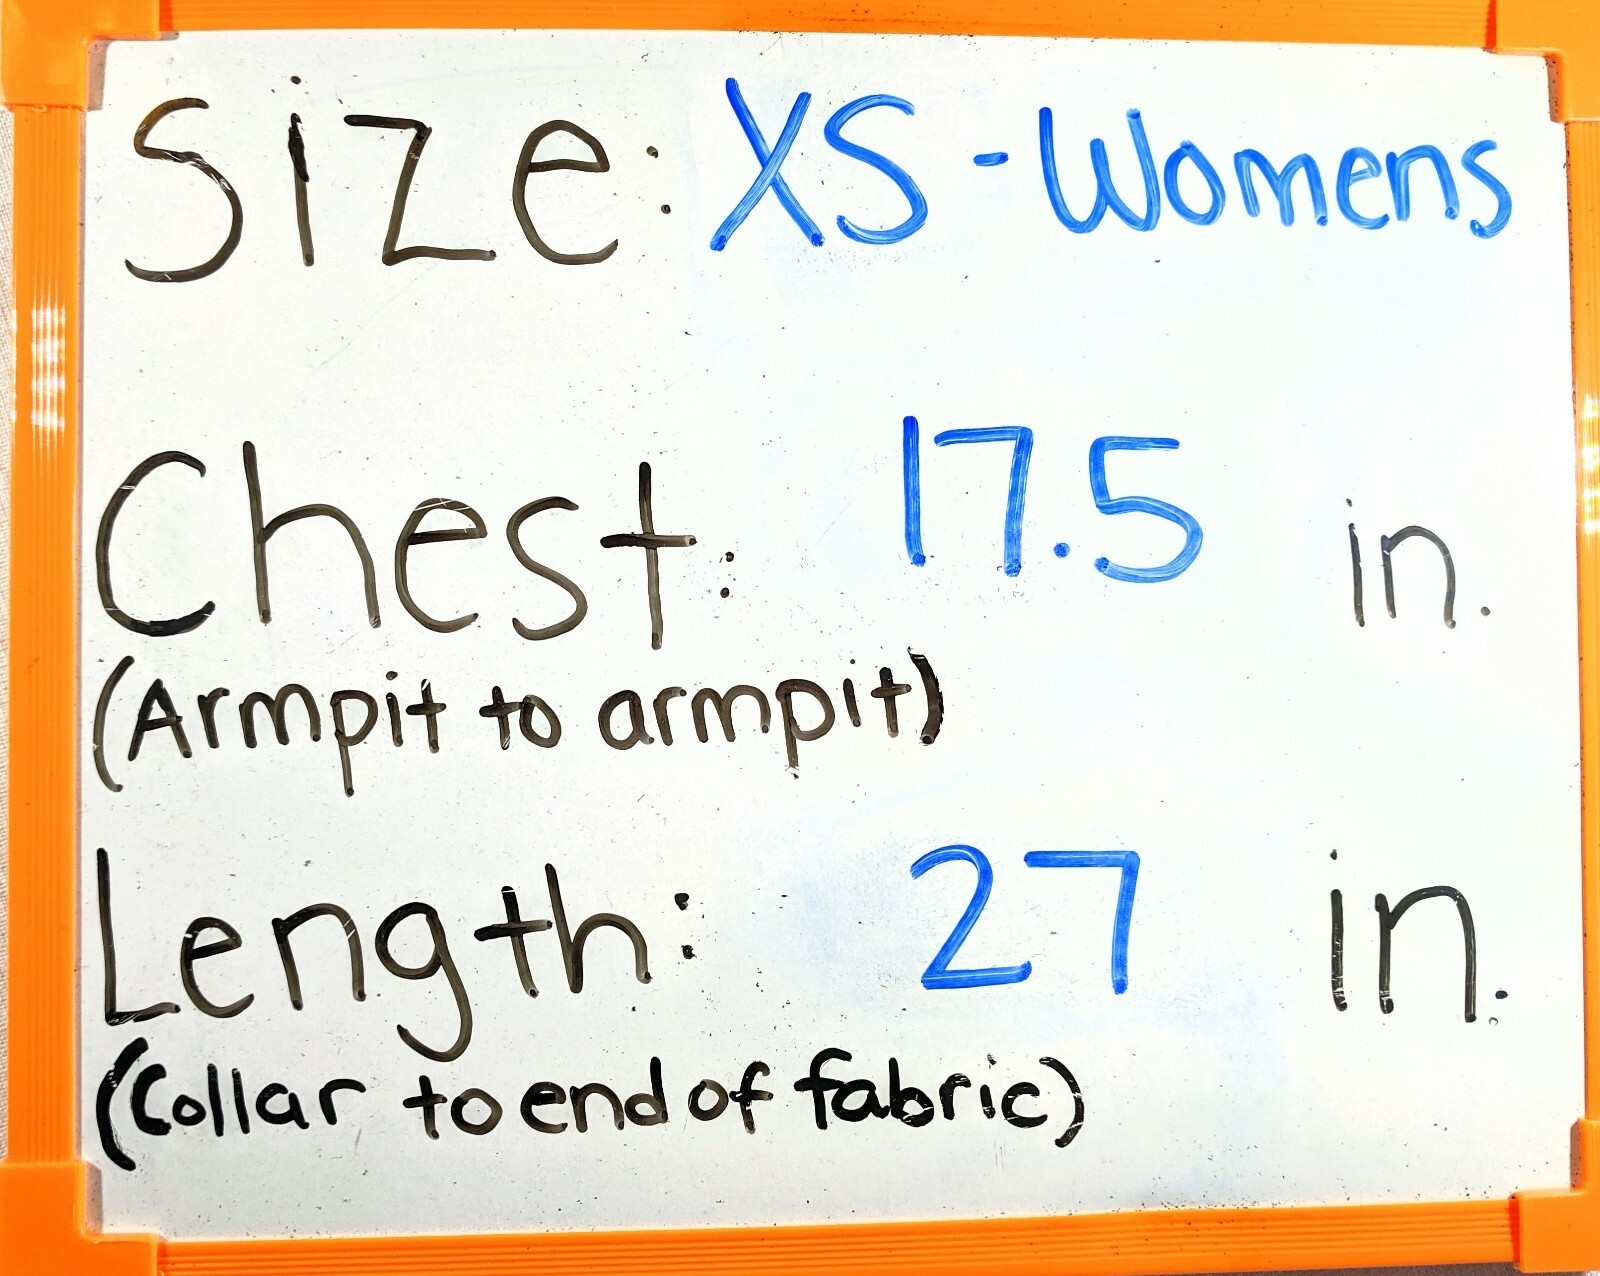 Size: XS - Womens
Chest: 17.5 in.
(Armpit to armpit)
Length: 27 in.
(Collar to end of fabric)